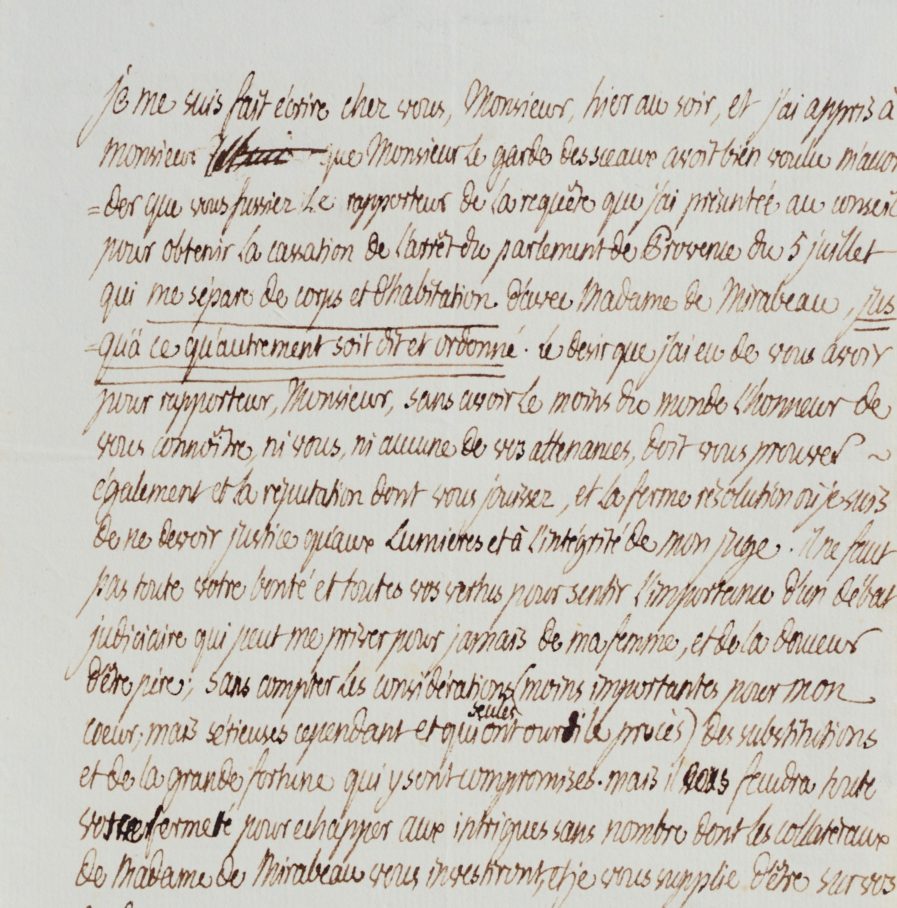 je me suis fait écrire chez vous, Monsieur, hier au soir, et j'ai appris à
monsieur que Monsieur le garde des sceaux avoit bien voulu m'accor
=der que vous fussiez le rapporteur de la requête que j'ai présentée au conseil
pour obtenir la cassation de l'arrêt du parlement de Provence du 5 juillet
qui me sépare de corps et d'habitation d'avec Madame de Mirabeau, jus
=qu'à ce qu'autrement soit dit et ordonné. le desir que j'ai eu de vous avoir
pour rapporteur, Monsieur, sans avoir le moins du monde l'honneur de
vous connoître, ni vous, ni aucune de vos attenances, doit vous prouver ~
également et la réputation dont vous jouissez, et la ferme résolution où je suis
de ne devoir justice qu'aux lumières et à l'intégrité de mon juge. il ne faut
pas toute votre bonté et toutes vos vertus pour sentir l'importance d'un débat
judiciaire qui peut me priver pour jamais de ma femme, et de la douceur
d'être père; sans compter les considérations (moins importantes pour mon
coeur, mais sérieuses cependant et qui seules ont ourdi le procès) des substitutions
et de la grande fortune qui y sont compromises. mais il vous faudra toute
votre fermeté pour echapper aux intrigues sans nombre dont les collateraux
de Madame de Mirabeau vous investiront, et je vous supplie d'être sur vos